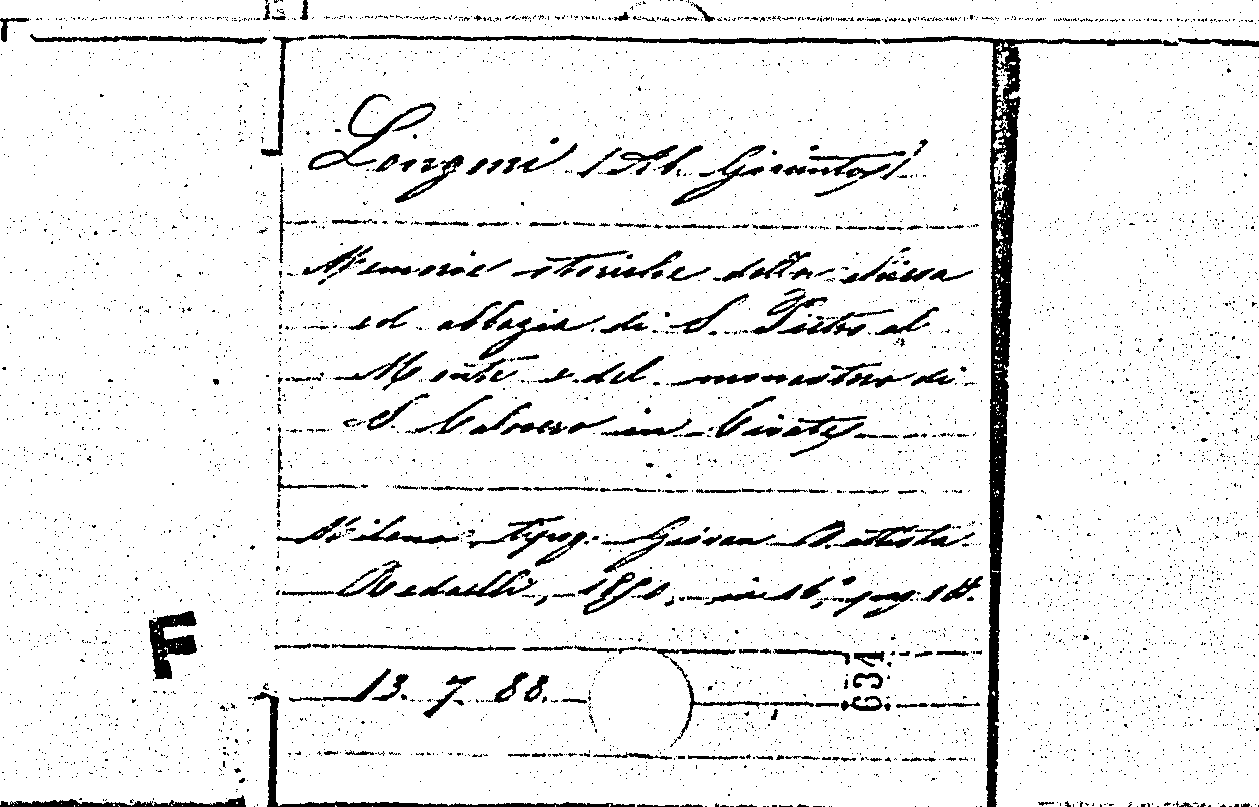 Longoni (Ab. Giacinto)
Memorie storiche della chiesa
ed abbazia di S. Pietro al
Monte e del monastero di
S. Calocero in Civate
Milano tipog. Giovan Battista
Redaelli, 1850, in 16° pag.
13. 7 88.
634
F